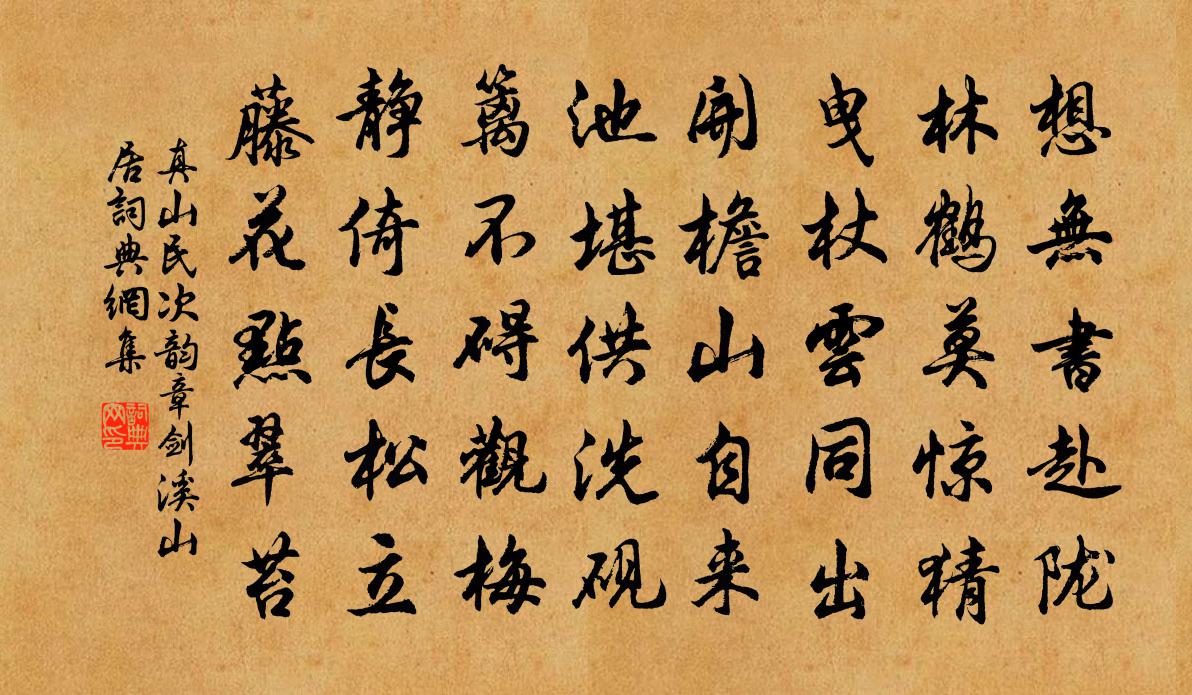 想無書赴陇
林鶴莫惊猜
曳杖雲同出
開檐山自来
池堪供洗砚
篱不碍觀梅
静倚長松立
藤花點翠苔
真山民次韵章剑溪山
居詞典網集
詞典網印